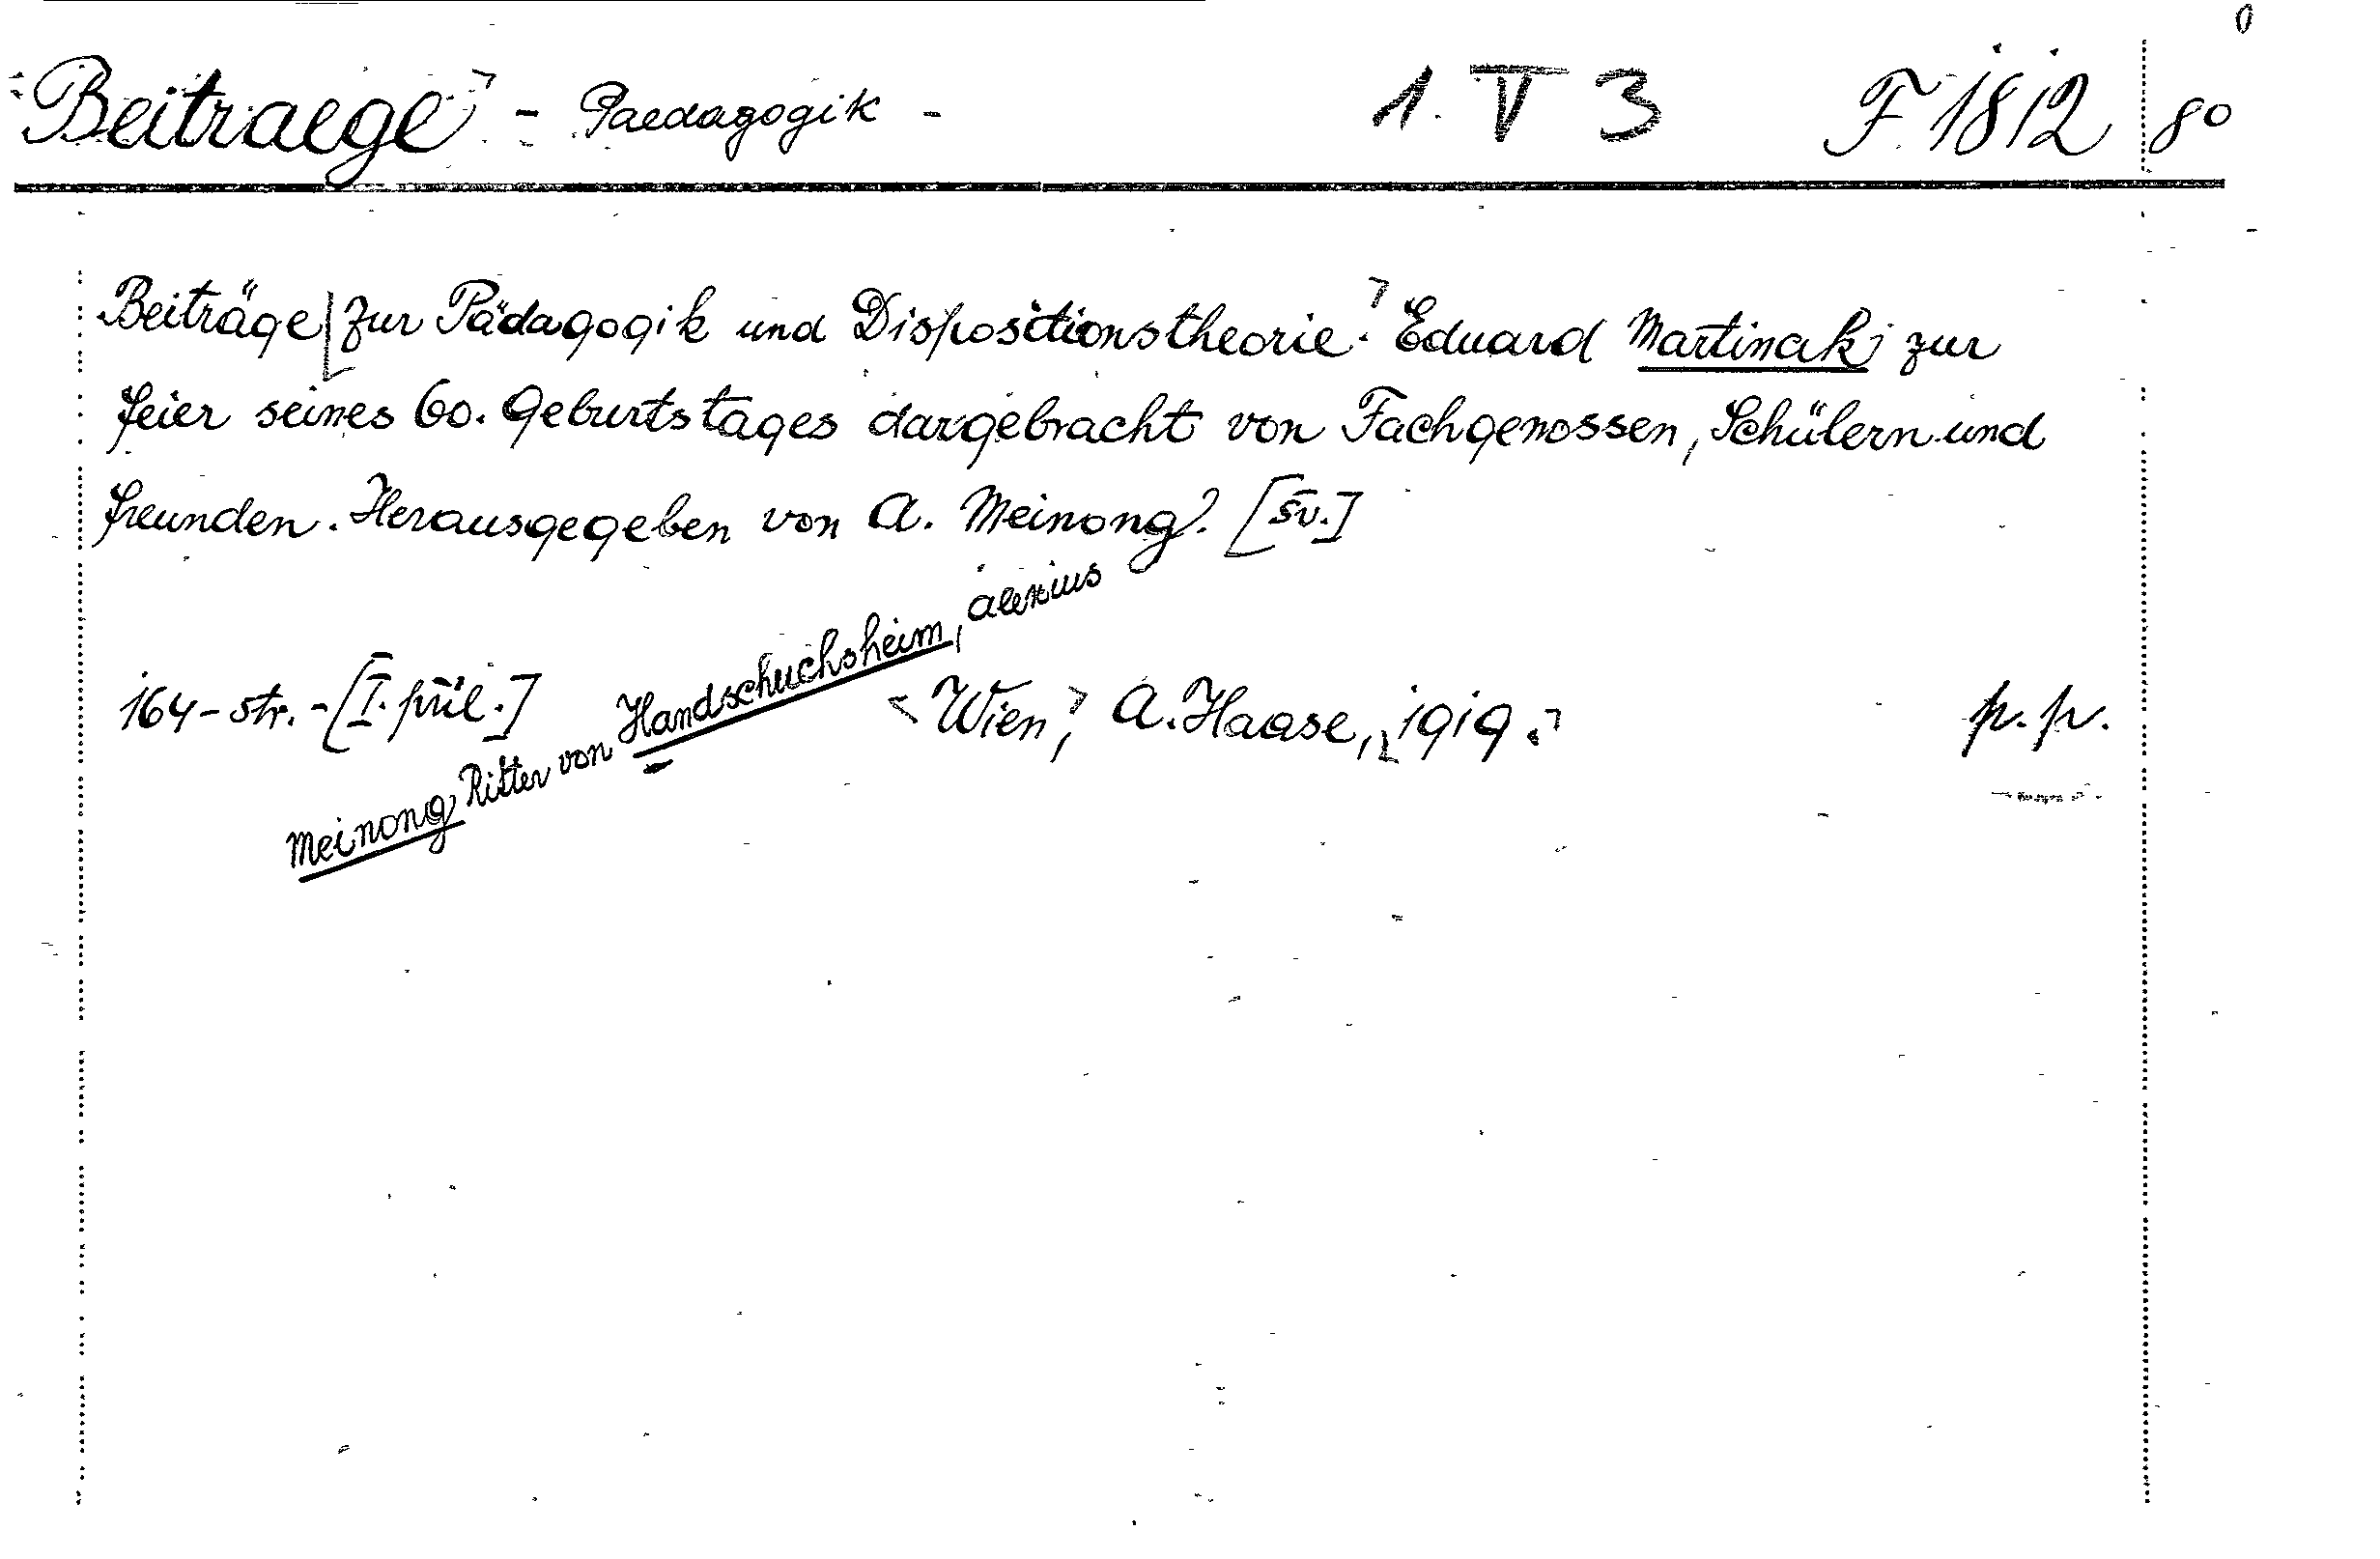 Beitraege - Paedagogik - 1. V 3 F. 1812 8°
Beiträge [zur Pädagogik und Dispositionstheorie. Eduard Martinak zur
Feier seines 60. Geburtstages dargebracht von Fachgenossen, Schülern und
Freunden. Herausgegeben von A. Meinong. [Sv.]
Meinong Ritter von Handschuchsheim, Alexius
164 - str. - [I. príl.] Wien, A. Haase, 1919. p. p.